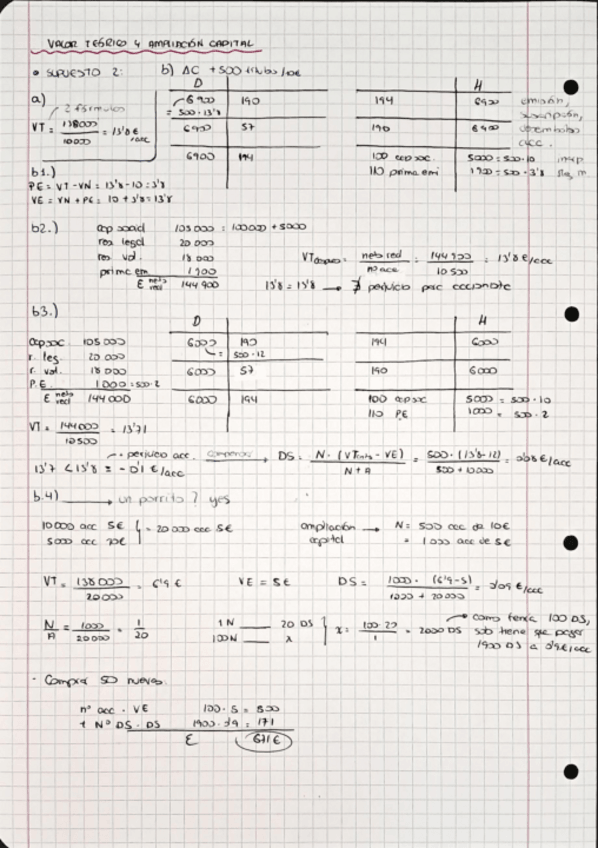 VALOR TEÓRICO Y AMPLIACIÓN CAPITAL
• SUPUESTO 2: b) ΔC + 500 títulos/10€
D H
a) 2 fórmulas
6900 190 194 6900 emisión,
= 500·13'8 suscripción,
VT = 138000 / 10000 = 13'8€ /acc
6900 57 190 6900 desembolso
acc.
6900 194 100 cap soc. 5000 = 500·10 insc.
110 prima emi 1900 = 500·3'8 Reg. m
b1.)
PE = VT - VN = 13'8 - 10 = 3'8
VE = VN + PE = 10 + 3'8 = 13'8
b2.) cap social 105 000 = 100000 + 5000
res legal 20 000
res vol. 18 000
prima em 1900
Σ neto real 144 900
VT después = neto real / nº acc = 144 900 / 10 500 = 13'8 €/acc
13'8 = 13'8 → ∄ perjuicio para accionista
b3.)
D H
cap soc. 105 000 6000 190 194 6000
= 500·12
r. leg. 20 000
r. vol. 18 000 6000 57 190 6000
P.E. 1000 = 500·2
Σ neto real 144 000 6000 194 100 cap soc 5000 = 500·10
110 PE 1000 = 500·2
VT = 144000 / 10500 = 13'71
perjuicio acc. compensar → DS = N·(VT ants - VE) / N + A = 500·(13'8-12) / 500 + 10000 = 0'08 €/acc
13'7 < 13'8 = -0'1 €/acc
b.4) → un porrito? yes
10 000 acc 5€ = 20 000 acc 5€ ampliación → N = 500 acc de 10€
5000 acc 10€ capital = 1000 acc de 5€
VT = 138 000 / 20 000 = 6'9 € VE = 5€ DS = 1000·(6'9-5) / 1000 + 20 000 = 0'09 €/acc
N/A = 1000 / 20 000 = 1/20
1 N — 20 DS
100 N — x
x = 100·20 / 1 = 2000 DS
como tenía 100 DS,
solo tiene que pagar
1900 DS a 0'9€/acc
- Comprar 50 nuevas.
nº acc · VE 100·5 = 500
+ Nº DS · DS 1900·0'9 = 171
Σ 671€